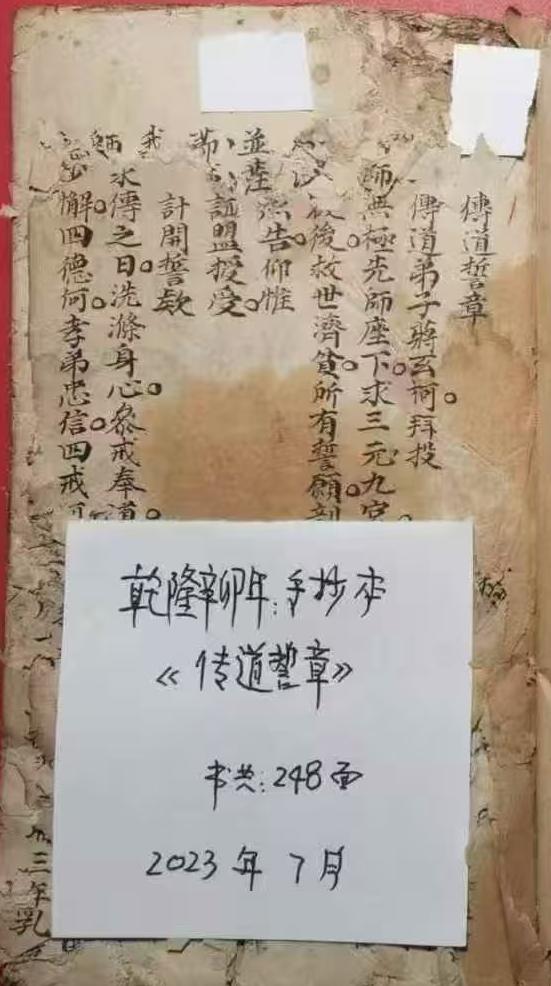 傳道誓章
傳道弟子蔣玄柯。拜投
師無極先師座下。求三元九宮。
最後。救世濟貧。所有誓願。
並薩 告。仰惟
誆盟授受。
計開誓欵
我
師 傳之日。洗滌身心。叅戒奉道。
懈。四德何。孝弟忠信。四戒
三年乳
乾隆辛卯年:手抄本
《传道誓章》
书共:248面
2023年7月